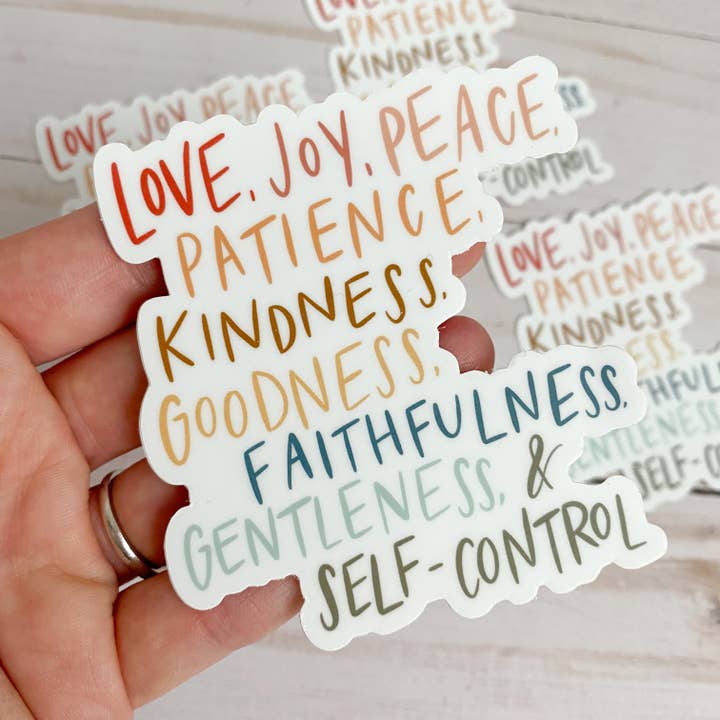 LOVE, JOY, PEACE,
PATIENCE,
KINDNESS,
GOODNESS,
FAITHFULNESS,
GENTLENESS, &
SELF-CONTROL
LOVE, JOY, PEACE
PATIENCE,
KINDNESS,
-CONTROL
LOVE, JOY, PEACE
LOVE, JOY, PEACE
PATIENCE,
KINDNESS
GENTLENESS
SELF-CONTROL